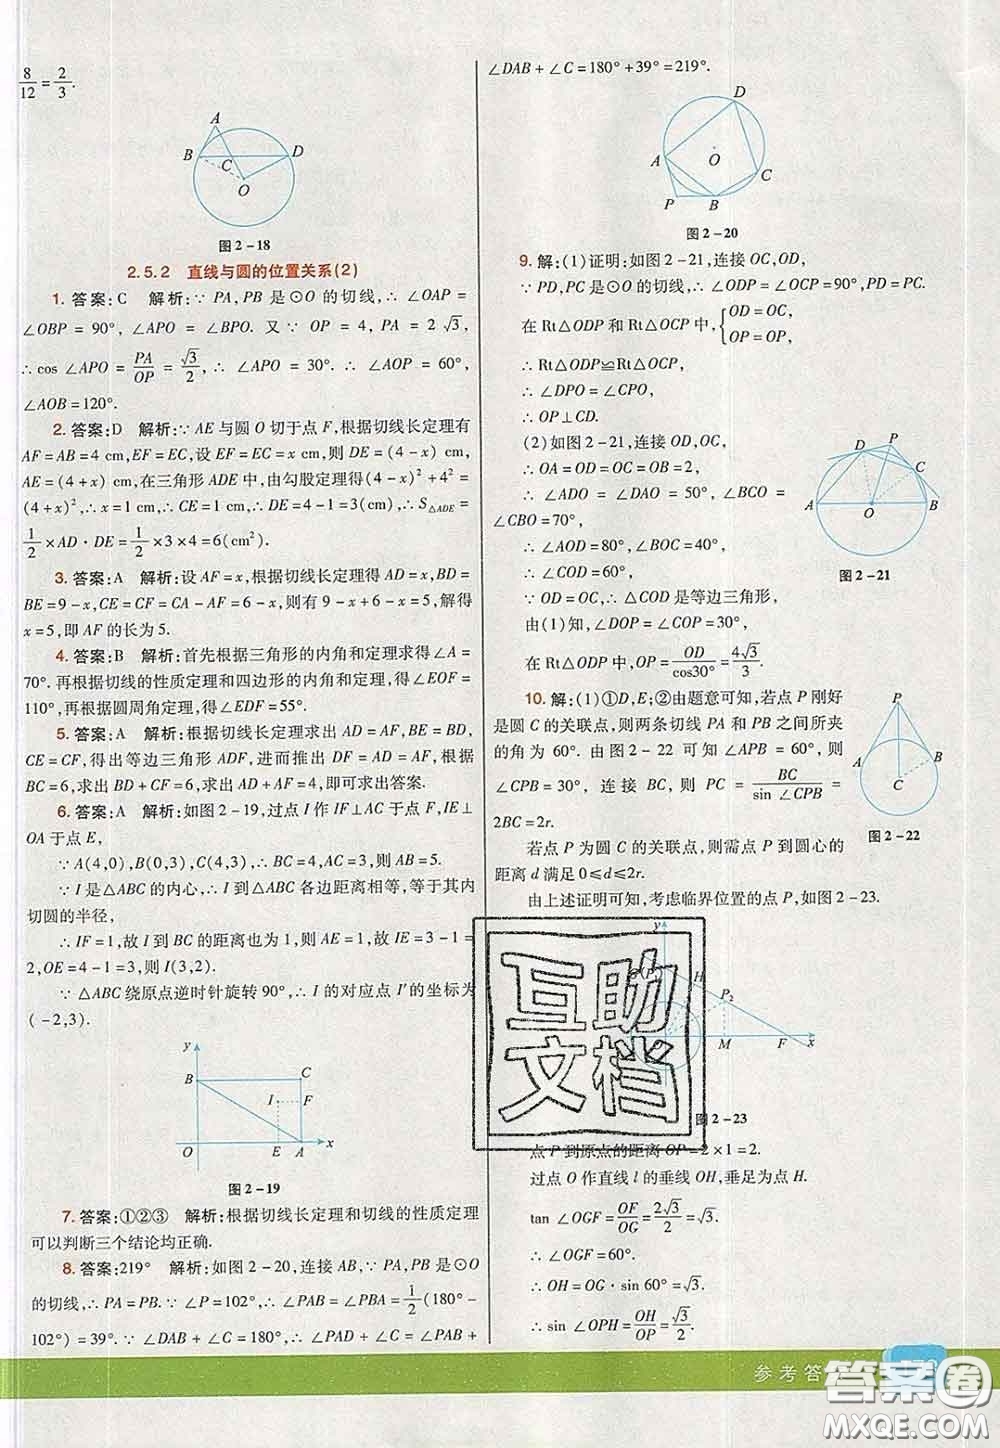 8/12 = 2/3.
A
B
C
D
O
图2-18
2.5.2 直线与圆的位置关系(2)
1. 答案:C 解析:∵ PA,PB 是⊙O 的切线,∴ ∠OAP =
∠OBP = 90°, ∠APO = ∠BPO. 又 ∵ OP = 4, PA = 2√3,
∴ cos ∠APO = PA/OP = √3/2, ∴ ∠APO = 30°. ∴ ∠AOP = 60°,
∠AOB = 120°.
2. 答案:D 解析:∵ AE 与圆 O 切于点 F,根据切线长定理有
AF = AB = 4 cm,EF = EC,设 EF = EC = x cm,则 DE = (4 - x) cm,
AE = (4 + x) cm,在三角形 ADE 中,由勾股定理得(4 - x)² + 4² =
(4 + x)²,∴ x = 1 cm,∴ CE = 1 cm,∴ DE = 4 - 1 = 3(cm),∴ S△ADE =
1/2 × AD · DE = 1/2 × 3 × 4 = 6(cm²).
3. 答案:A 解析:设 AF = x,根据切线长定理得 AD = x,BD =
BE = 9 - x,CE = CF = CA - AF = 6 - x,则有 9 - x + 6 - x = 5,解得
x = 5,即 AF 的长为 5.
4. 答案:B 解析:首先根据三角形的内角和定理求得∠A =
70°. 再根据切线的性质定理和四边形的内角和定理,得∠EOF =
110°,再根据圆周角定理,得∠EDF = 55°.
5. 答案:A 解析:根据切线长定理求出 AD = AF,BE = BD,
CE = CF,得出等边三角形 ADF,进而推出 AD = AF = DF = 4,根据
BC = 6,求出 BD + CF = 6,求出 AD = AF = 4,即可求出答案.
6. 答案:A 解析:如图 2 - 19,过点 I 作 IF⊥AC 于点 F,IE⊥
OA 于点 E,
∵ A(4,0),B(0,3),C(4,3),∴ BC = 4,AC = 3,则 AB = 5.
∵ I 是△ABC 的内心,∴ I 到△ABC 各边距离相等,等于其内
切圆的半径,
∴ IF = 1,故 I 到 BC 的距离也为 1,则 AE = 1,故 IE = 3 - 1 =
2,OE = 4 - 1 = 3,则 I(3,2).
∵ △ABC 绕原点逆时针旋转 90°,∴ I 的对应点 I' 的坐标为
( -2,3).
y
B
C
I
F
O
E
A
x
图2-19
7. 答案:①②③ 解析:根据切线长定理和切线的性质定理
可以判断三个结论均正确.
8. 答案:219° 解析:如图 2 - 20,连接 AB,∵ PA,PB 是⊙O
的切线,∴ PA = PB. ∵ ∠P = 102°,∴ ∠PAB = ∠PBA = 1/2(180° -
102°) = 39°. ∵ ∠DAB + ∠C = 180°,∴ ∠PAD + ∠C = ∠PAB +
∠DAB + ∠C = 180° + 39° = 219°.
D
A
O
C
P
B
图2-20
9. 解:(1)证明:如图 2 - 21,连接 OC,OD,
∵ PD,PC 是⊙O 的切线,∴ ∠ODP = ∠OCP = 90°,PD = PC.
在 Rt△ODP 和 Rt△OCP 中,{OD = OC,
OP = OP,
∴ Rt△ODP≌Rt△OCP,
∴ ∠DPO = ∠CPO,
∴ OP⊥CD.
(2)如图 2 - 21,连接 OD,OC,
∴ OA = OD = OC = OB = 2,
∴ ∠ADO = ∠DAO = 50°, ∠BCO =
∠CBO = 70°,
∴ ∠AOD = 80°,∠BOC = 40°,
∴ ∠COD = 60°,
∵ OD = OC,∴ △COD 是等边三角形,
由(1)知,∠DOP = ∠COP = 30°,
在 Rt△ODP 中,OP = OD/cos30° = 4√3/3.
P
D
C
A
O
B
图2-21
10. 解:(1)①D,E;②由题意可知,若点 P 刚好
是圆 C 的关联点,则两条切线 PA 和 PB 之间所夹
的角为 60°. 由图 2 - 22 可知∠APB = 60°,则
∠CPB = 30°, 连接 BC, 则 PC = BC/sin ∠CPB =
2BC = 2r.
P
A
B
C
图2-22
若点 P 为圆 C 的关联点,则需点 P 到圆心的
距离 d 满足 0≤d≤2r.
由上述证明可知,考虑临界位置的点 P,如图 2 - 23.
y
H
P₂
M
F
x
互助
文档
2-23
点 P 到原点的距离 OP = 2 × 1 = 2.
过点 O 作直线 l 的垂线 OH,垂足为点 H.
tan ∠OGF = OF/OG = 2√3/2 = √3.
∴ ∠OGF = 60°.
∴ OH = OG · sin 60° = √3.
∴ sin ∠OPH = OH/OP = √3/2.
参考答
答案圈
MXQE.COM